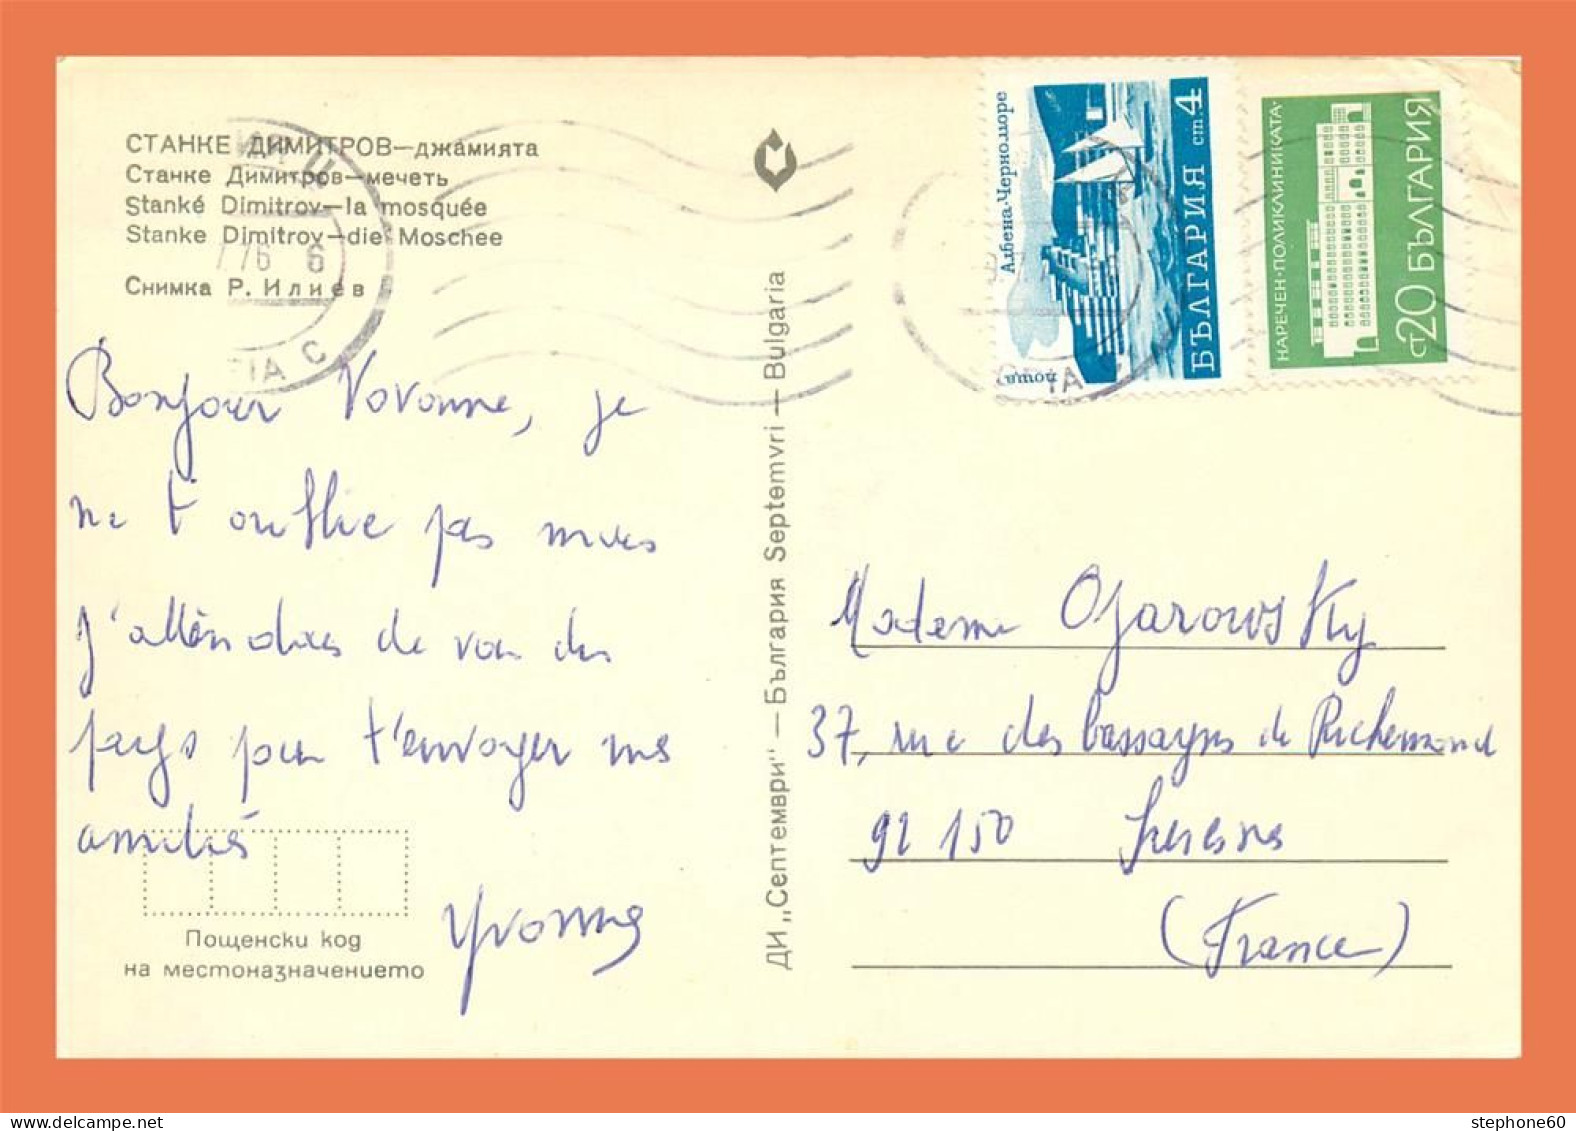 СТАНКЕ ДИМИТРОВ—джамията
Станке Димитров—мечеть
Stanké Dimitrov—la mosquée
Stanke Dimitrov—die Moschee
Снимка Р. Илиев
Bonjour Vovonne, je
ne t'oublie pas mais
j'attendais de voir du
pays pour t'envoyer mes
amitiés
Yvonne
Пощенски код
на местоназначението
ДИ „Септември" — България Septemvri — Bulgaria
Албена-Черноморе
поща
БЪЛГАРИЯ ст. 4
НАРЕЧЕН·ПОЛИКЛИНИКАТА·
ст 20 БЪЛГАРИЯ
76 6
Madame Ojarowsky
37, rue des bassayns de Richemond
92 150 Suresnes
(France)
stephone60